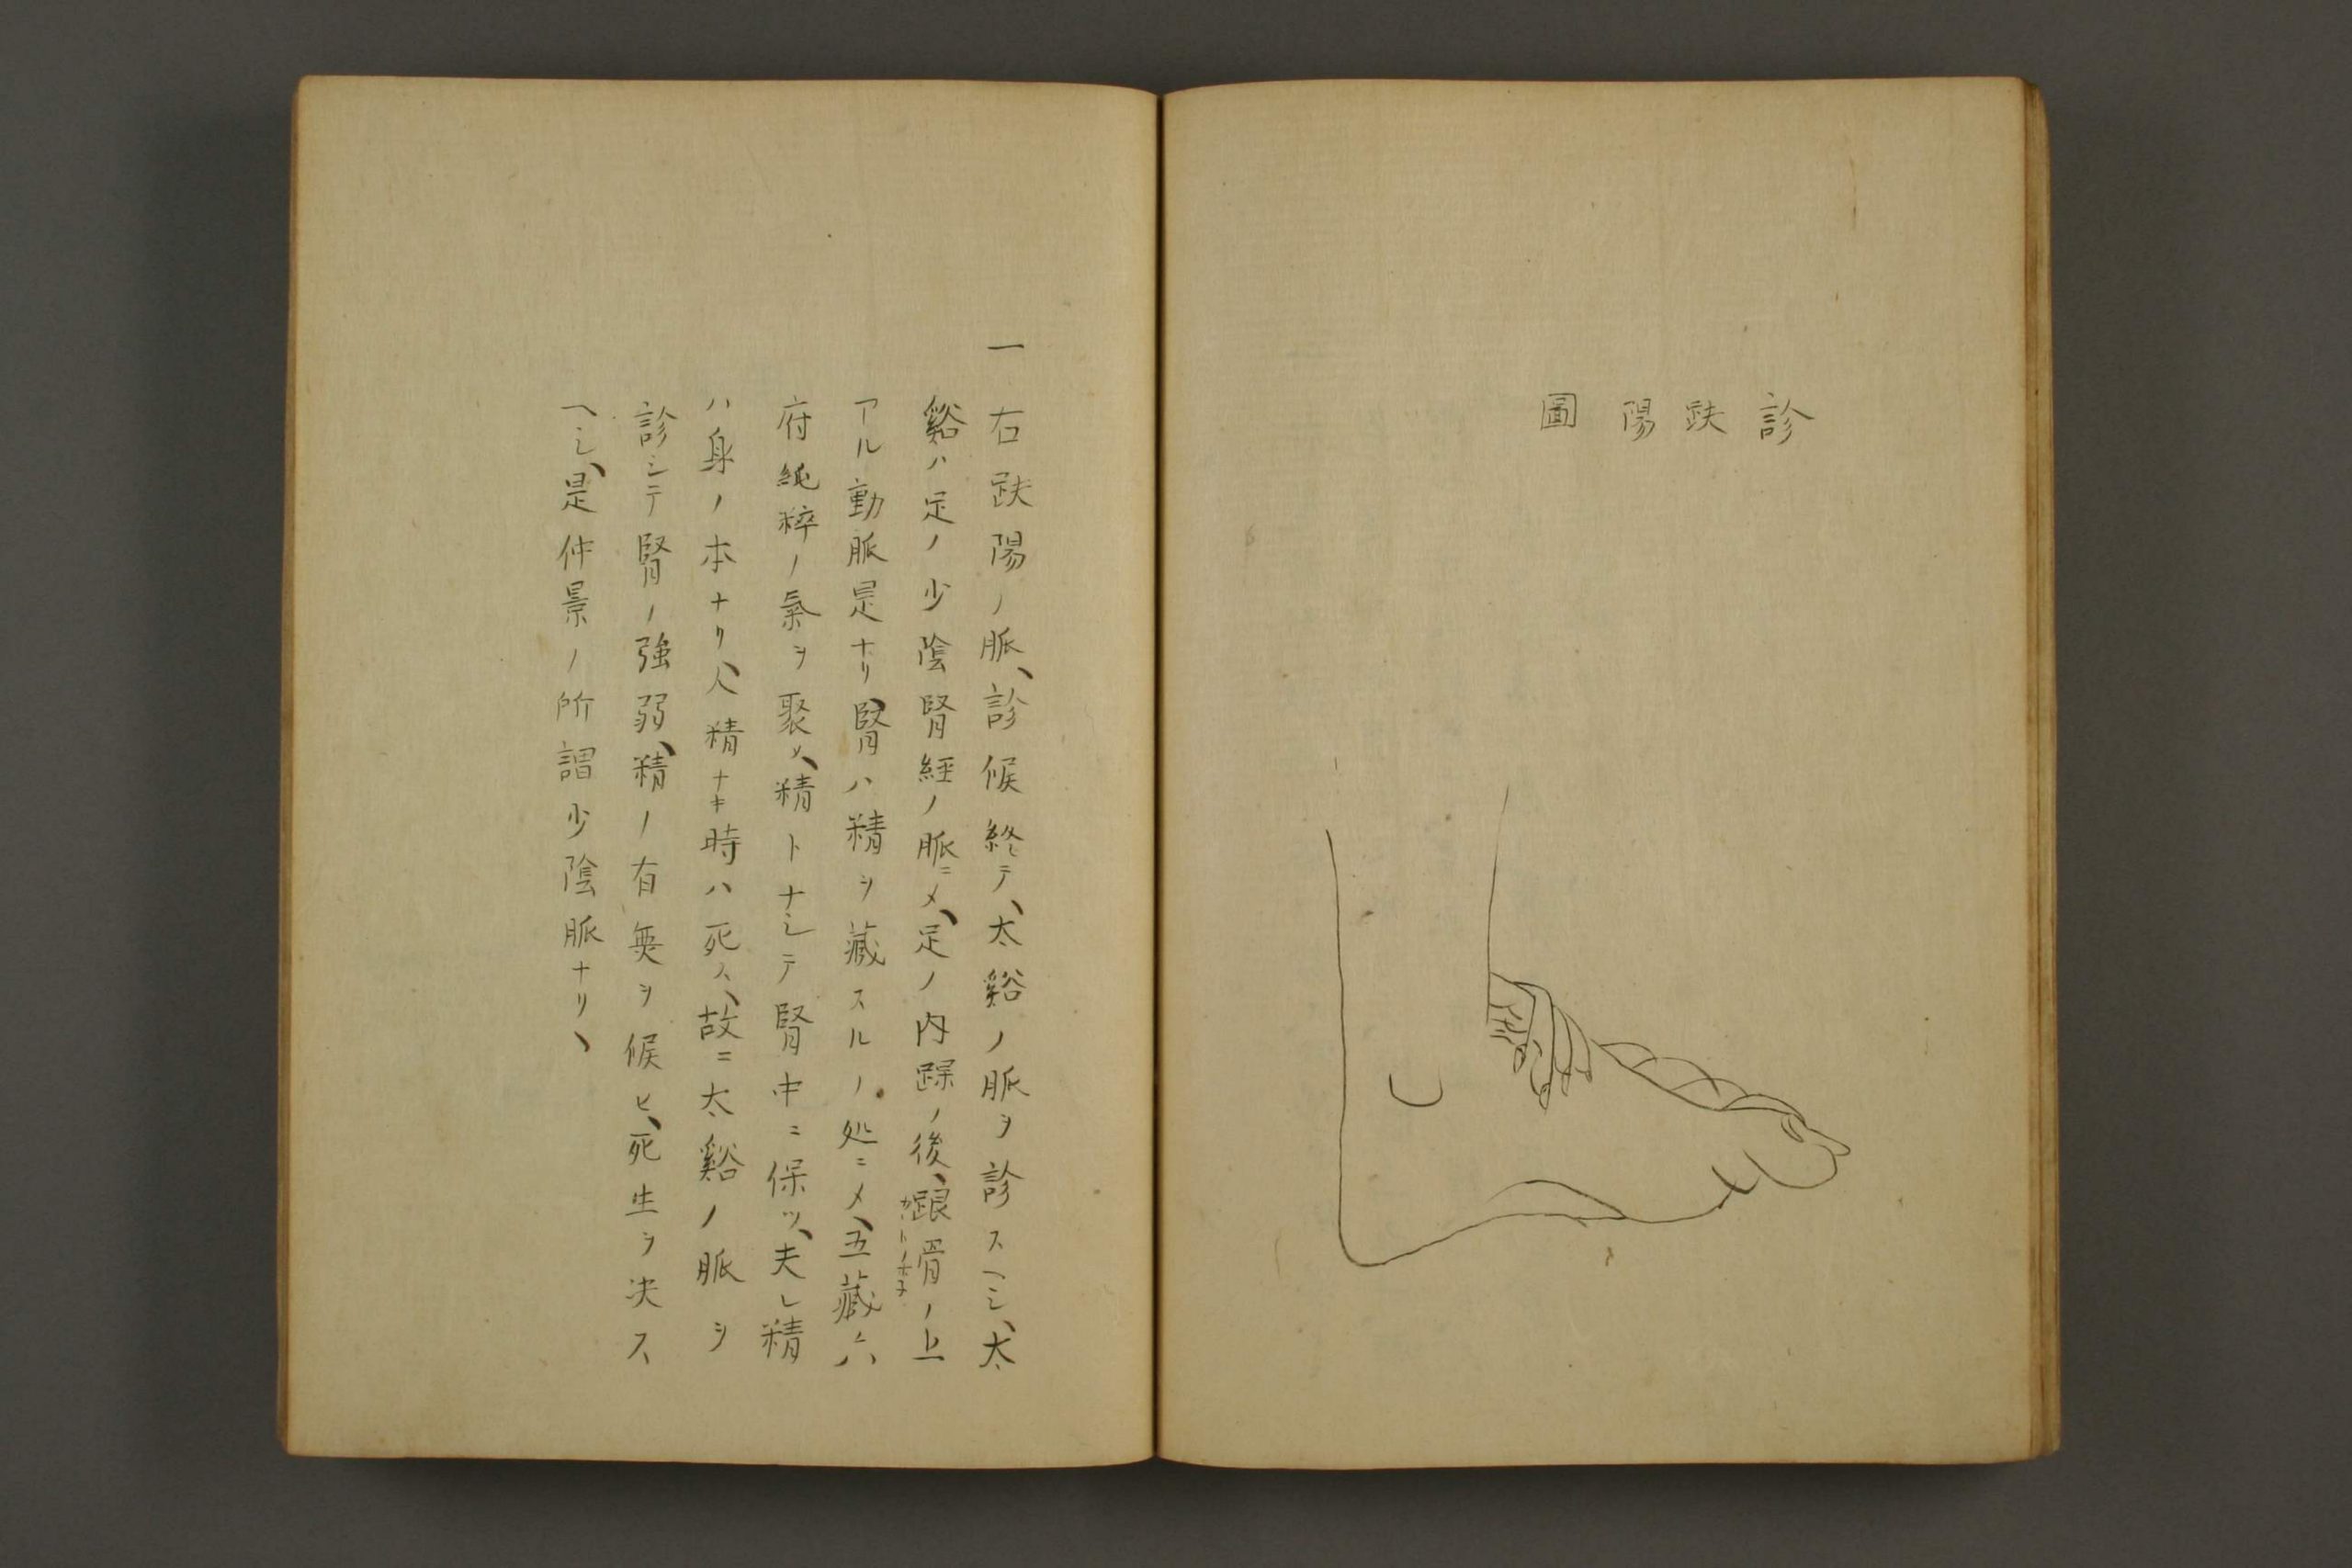 診趺陽圖
一右趺陽ノ脈、診候終テ、太谿ノ脈ヲ診スヘシ、太
谿ハ足ノ少陰腎経ノ脈ニメ、足ノ内踝ノ後、跟骨ノ上
アル動脈是ナリ、腎ハ精ヲ藏スルノ処ニメ、五藏六
府純粹ノ氣ヲ聚メ、精トナシテ腎中ニ保ツ、夫レ精
ハ身ノ本ナリ、人精ナキ時ハ死ス、故ニ太谿ノ脈ヲ
診シテ腎ノ強弱、精ノ有無ヲ候ヒ、死生ヲ決ス
ヘシ、是仲景ノ所謂少陰脈ナリ、